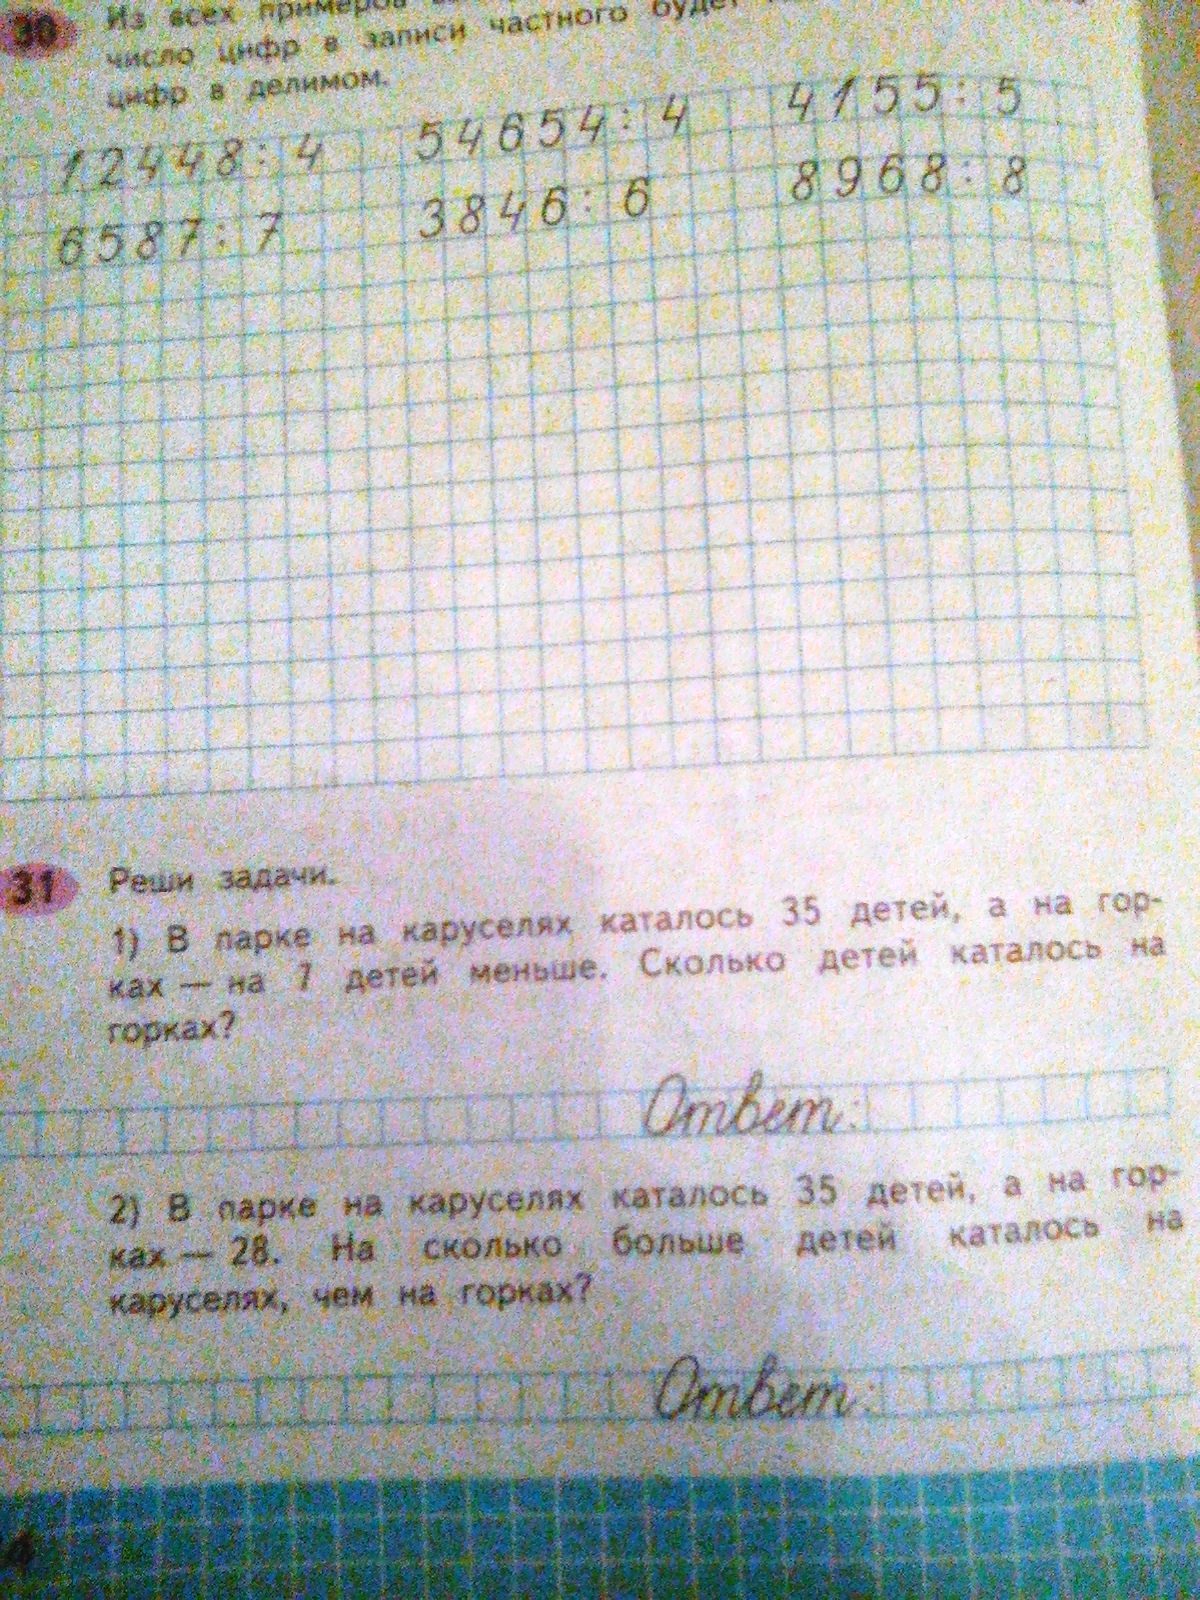 30 Из всех примеров
число цифр в записи частного будет
цифр в делимом.
12448: 4 54654: 4 4155: 5
6587: 7 3846: 6 8968: 8
31 Реши задачи.
1) В парке на каруселях каталось 35 детей, а на гор-
ках — на 7 детей меньше. Сколько детей каталось на
горках?
Ответ:
2) В парке на каруселях каталось 35 детей, а на гор-
ках — 28. На сколько больше детей каталось на
каруселях, чем на горках?
Ответ:
4